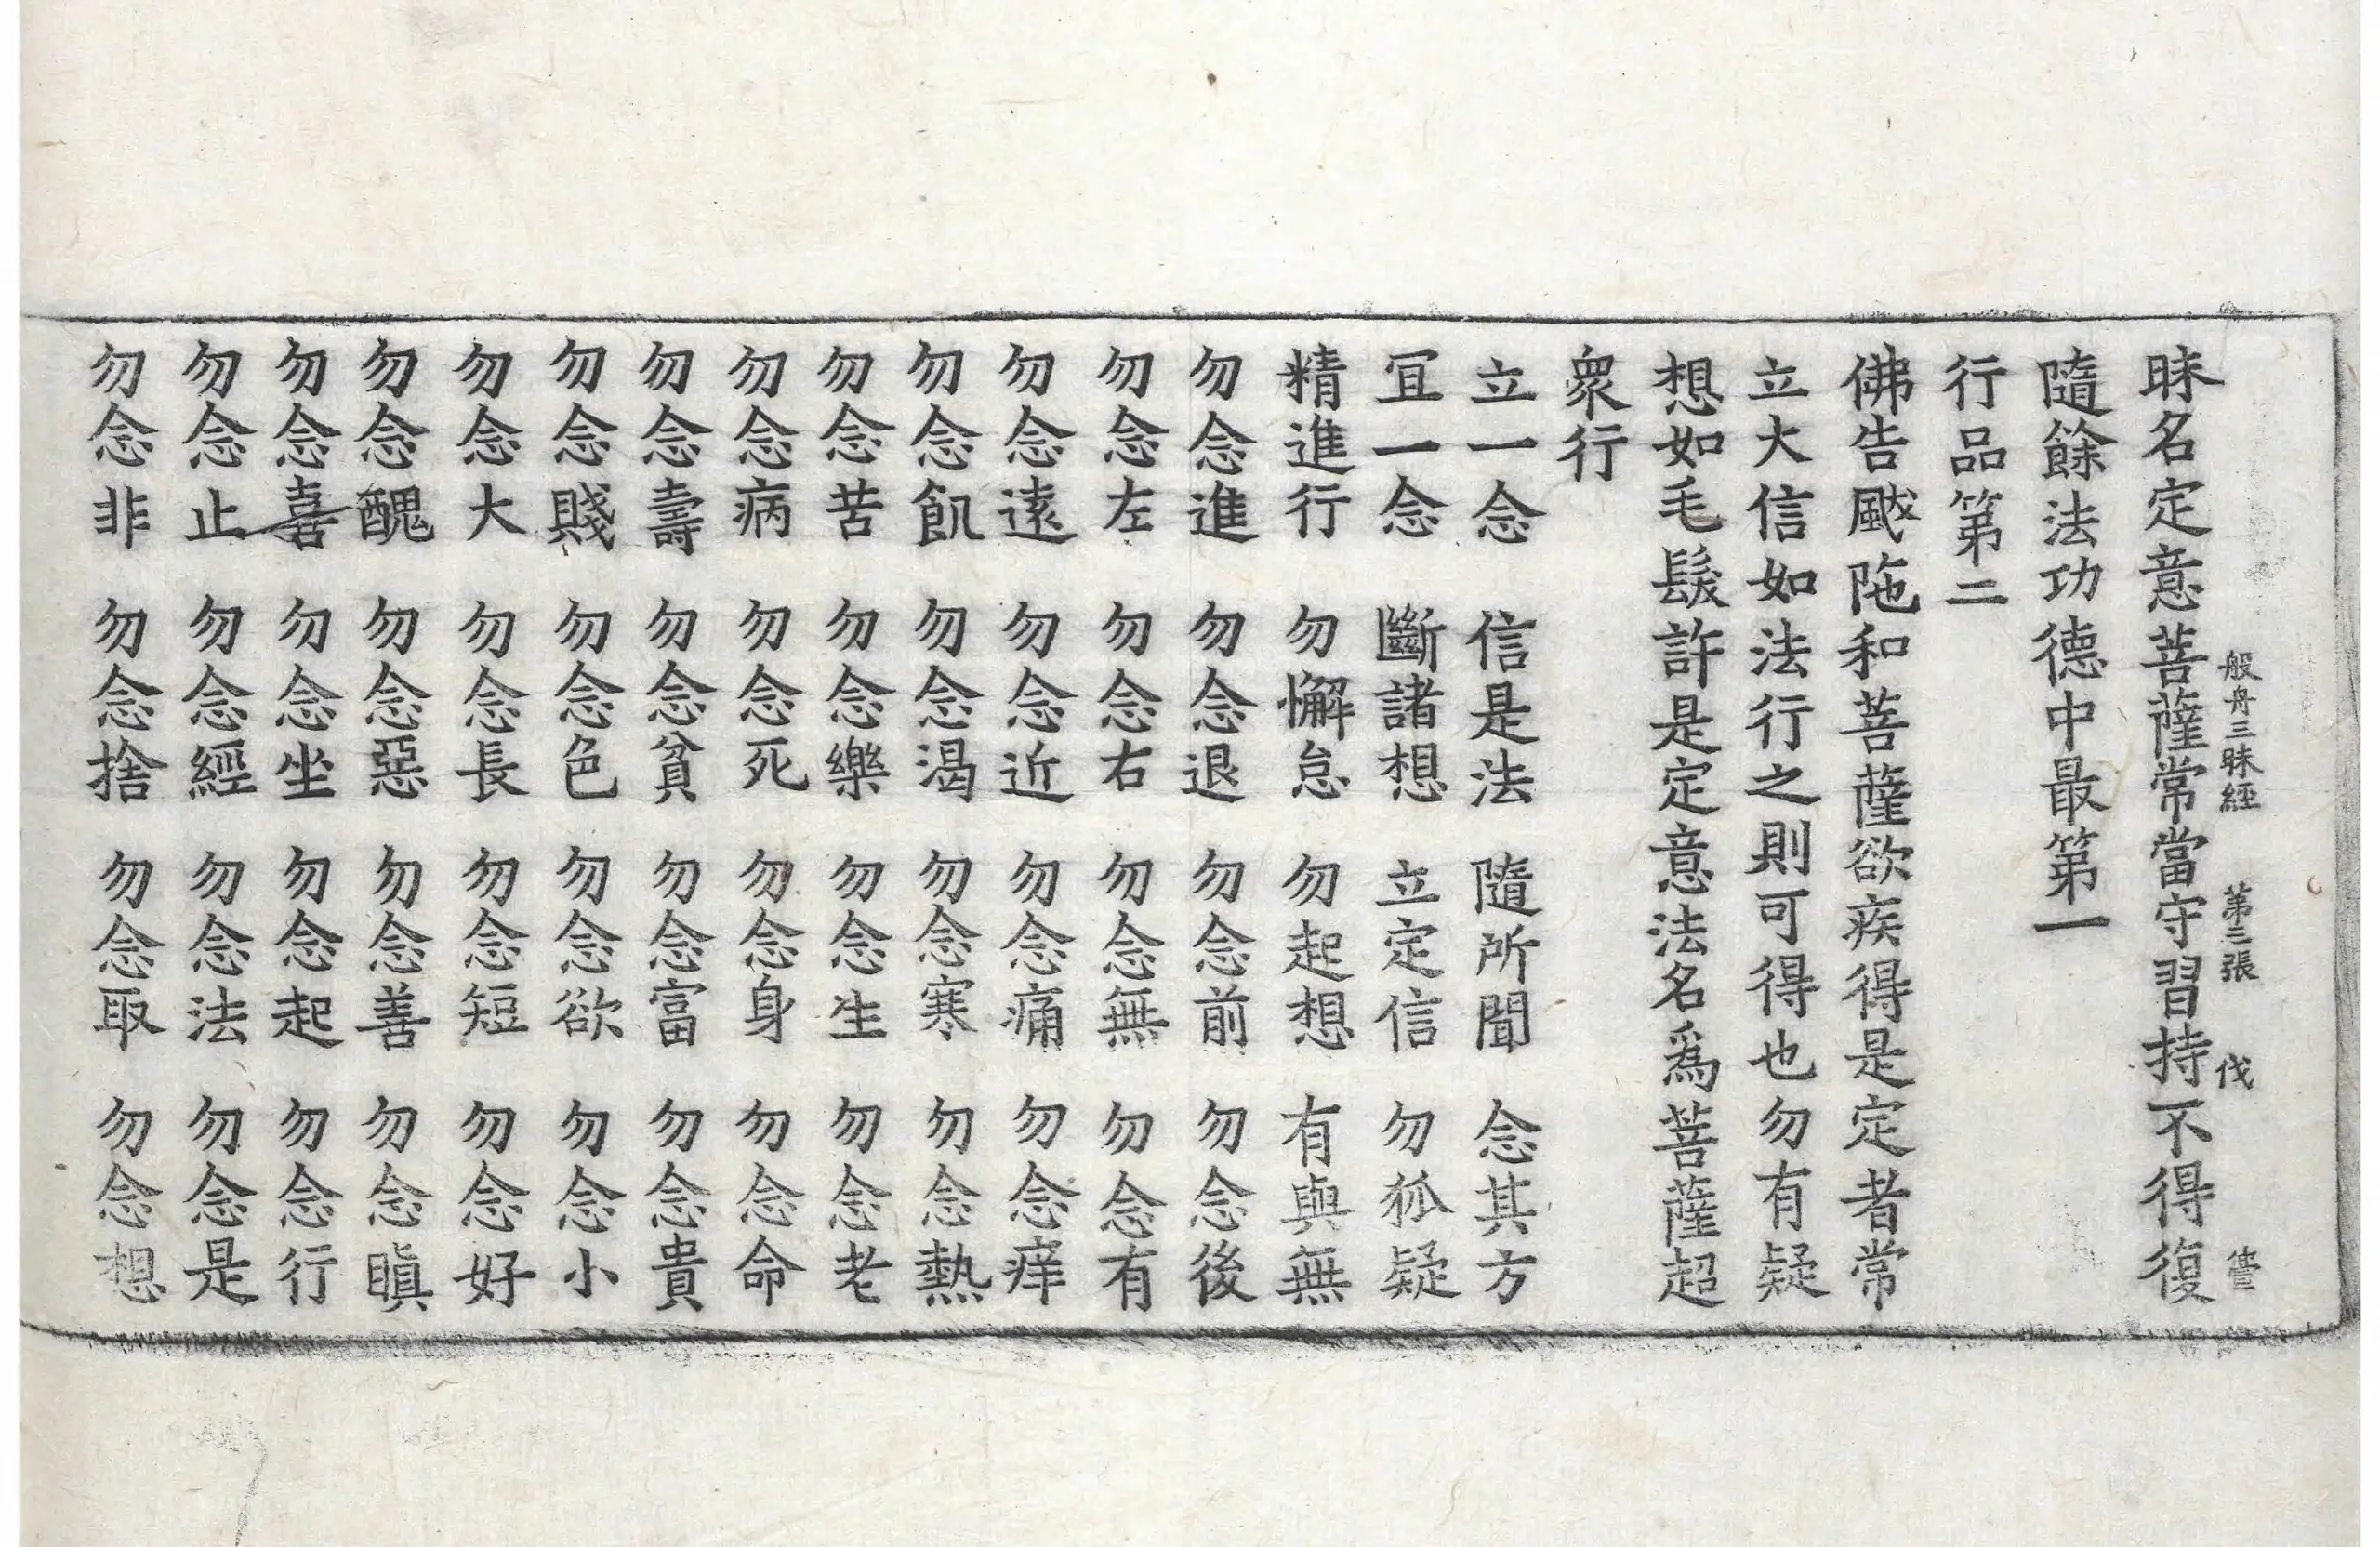 昧名定意菩薩常當守習持不得復
般舟三昧經 第三張 伐
隨餘法功德中最第一
行品第二
佛告颰陁和菩薩欲疾得是定者常
立大信如法行之則可得也勿有疑
想如毛髮許是定意法名爲菩薩超
衆行
立一念 信是法 隨所聞 念其方
冝一念 斷諸想 立定信 勿狐疑
精進行 勿懈怠 勿起想 有與無
勿念進 勿念退 勿念前 勿念後
勿念左 勿念右 勿念無 勿念有
勿念遠 勿念近 勿念痛 勿念痒
勿念飢 勿念渴 勿念寒 勿念熱
勿念苦 勿念樂 勿念生 勿念老
勿念病 勿念死 勿念身 勿念命
勿念壽 勿念貧 勿念富 勿念貴
勿念賤 勿念色 勿念欲 勿念小
勿念大 勿念長 勿念短 勿念好
勿念醜 勿念惡 勿念善 勿念瞋
勿念喜 勿念坐 勿念起 勿念行
勿念止 勿念經 勿念法 勿念是
勿念非 勿念捨 勿念取 勿念想